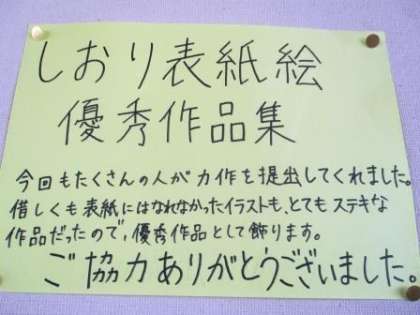 しおり表紙絵
優秀作品集
今回もたくさんの人が力作を提出してくれました。
惜しくも表紙にはなれなかったイラストも、とてもステキな
作品だったので、優秀作品として飾ります。
ご協力ありがとうございました。